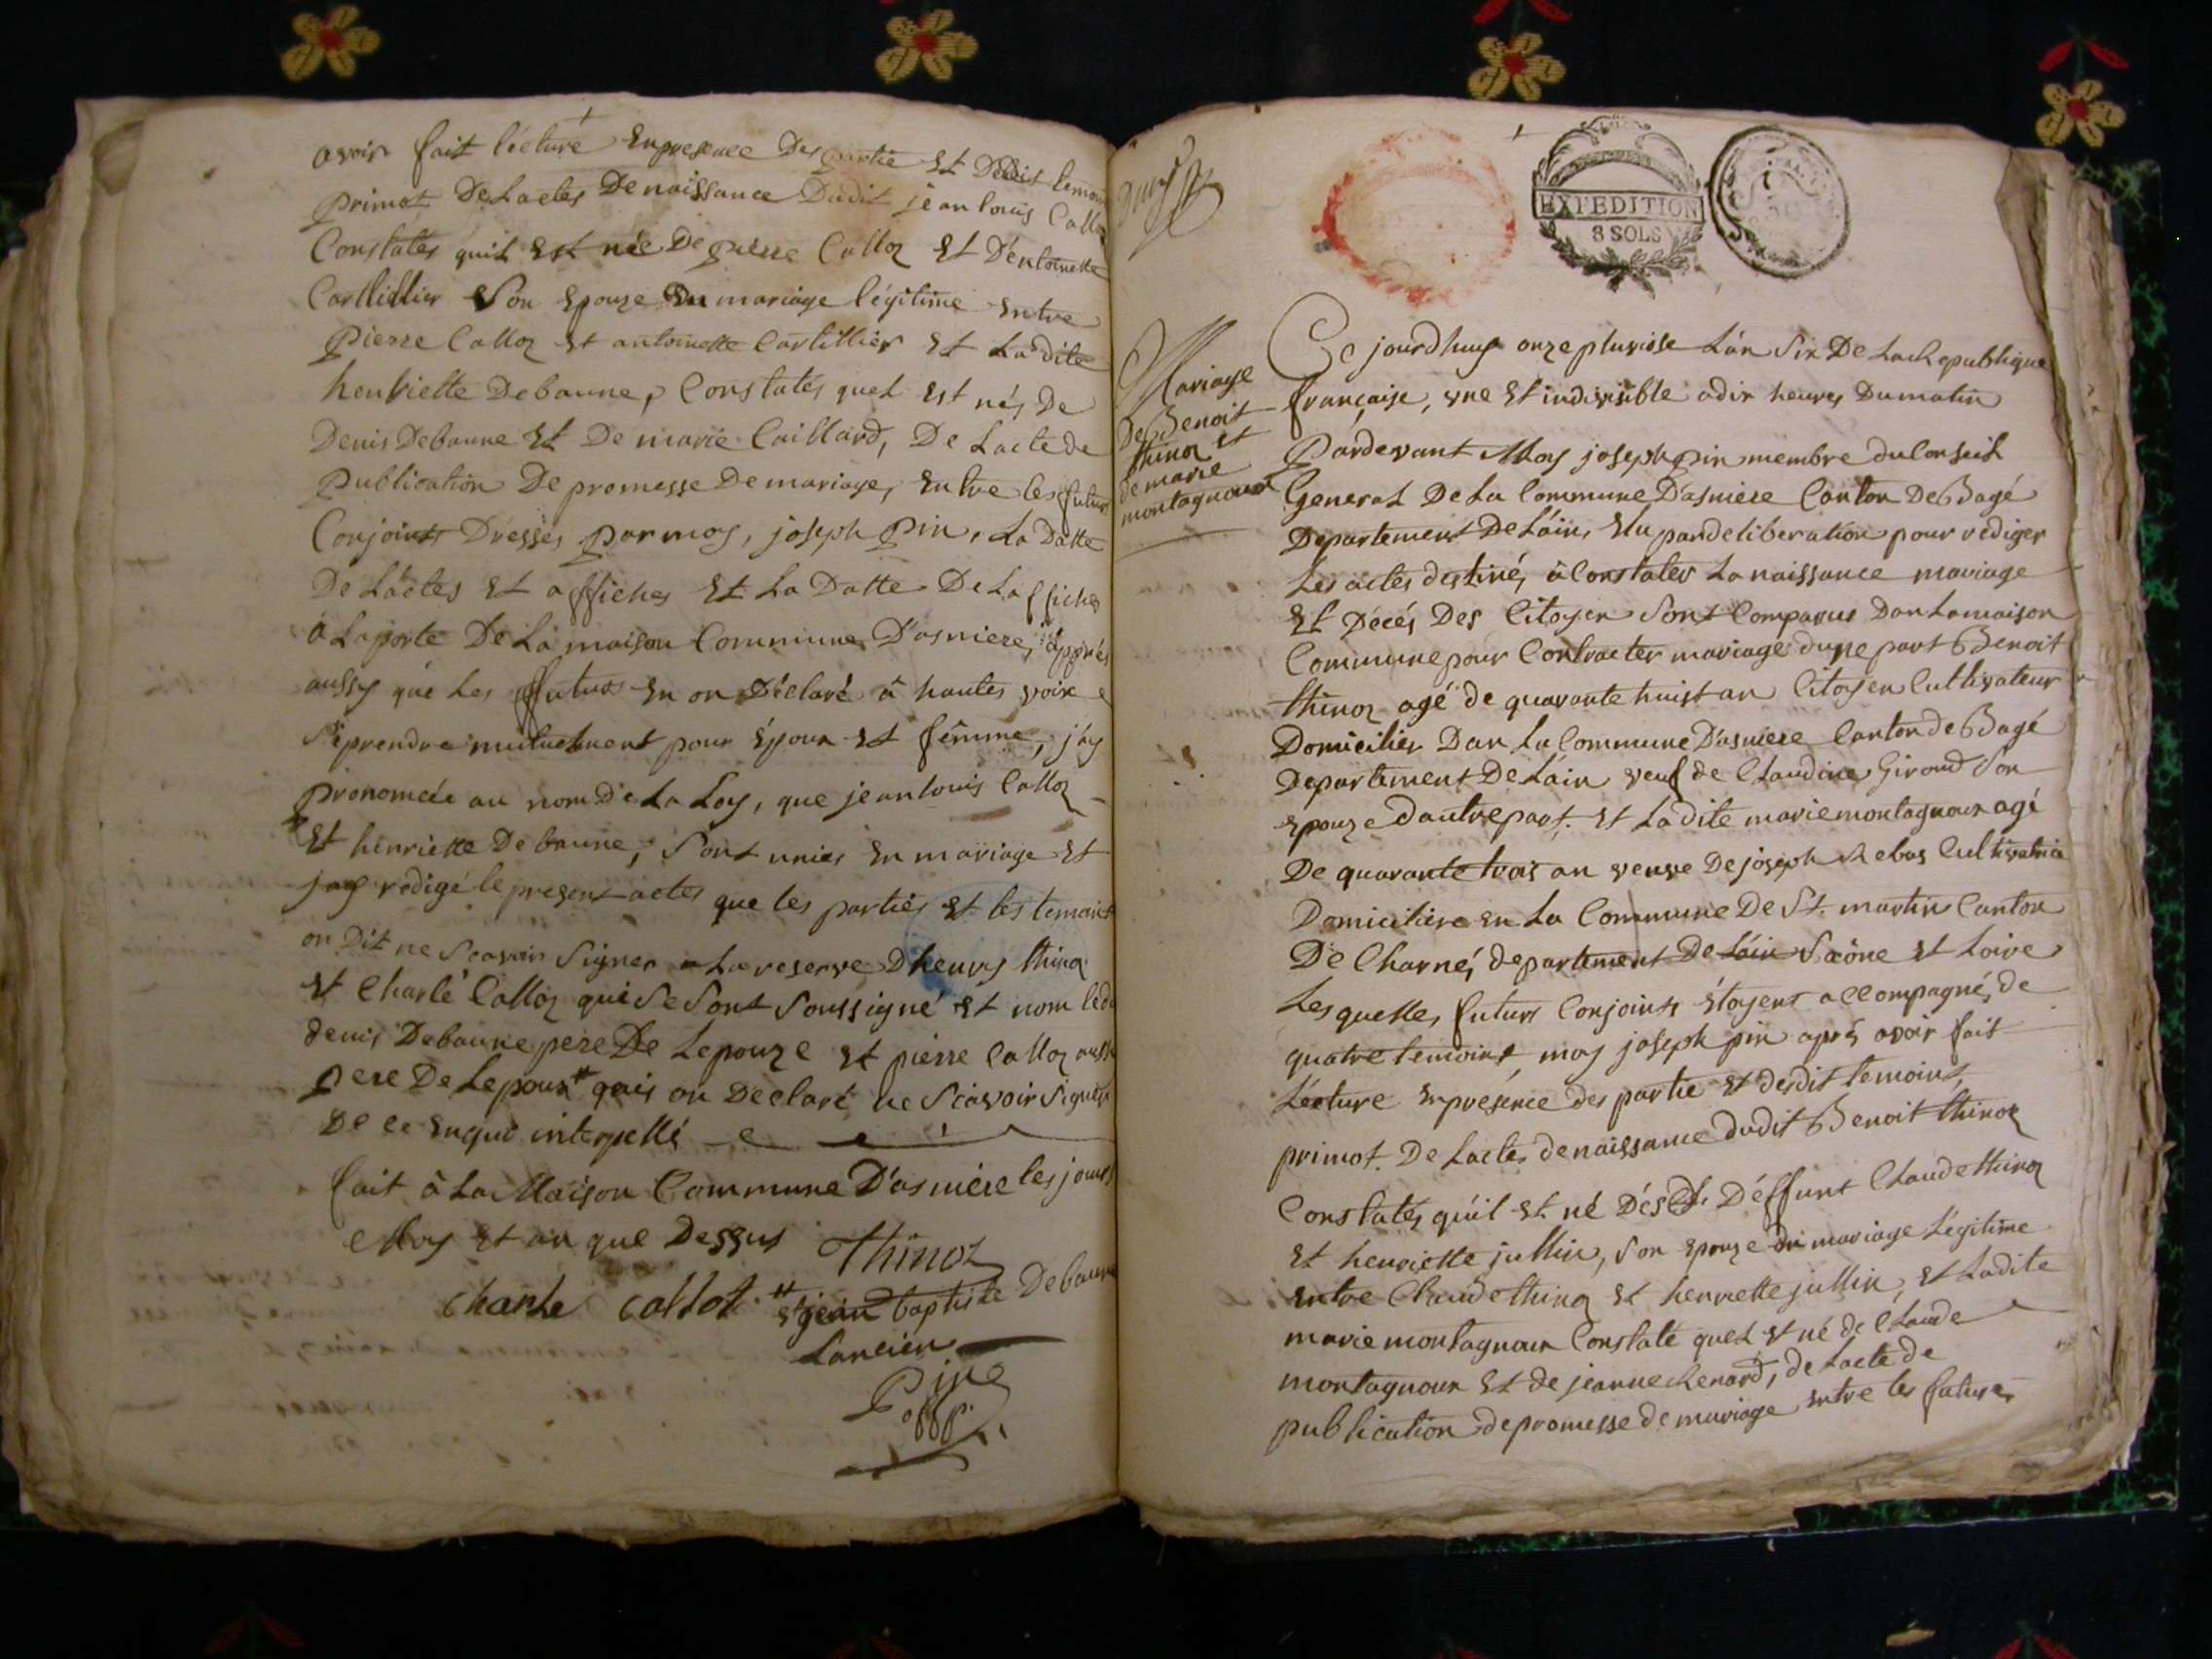 avoir fait lécture en presence Des partie Et Desdit temoin
primot De Lactes De naissance Dudit jean louis Calloz
Constatés quil Est née De pierre Calloz Et D'entoinette
Cartillier Son Epouze Du mariage légitime Entre
Pierre Calloz Et antoinette Cartillier Et La dite
henriette Debaune, Constatés quel Est nés De
Denis Debaune Et De marie Caillard, De Lacte de
Publication De promesse De mariage, Entre les futur
Conjoints Dressés par moy, joseph Pin, La Datte
De Láctes Et affiches Et La Datte De Laffiches
á La porte De La maison Commune D'asniere, apprés
aussy qué Les ffuturs En on Déclaré á hautes voix
Se prendre mutuelment pour Epoux Et fémme, j'ay
pronomcée au nom De La Loy, que jean louis Calloz
Et henriette De baune, Sont unies En mariage Et
jay rédigé le present actes que les parties Et les temoins
on Dit ne Scavoir Signer a La reserve D'heury thinoz
Et Charle Calloz qui Se Sont Soussigné Et nom led
denis Debaune pere De Lepouze Et pierre Calloz aussi
pere De Lepoux # quis on Declaré ne Scavoir Signer
De ce Enque interpellé
fait á La Maison Commune D'asniere les jours
Moy Et an que Dessus Thinoz
Charle Collot # Et jean baptiste Debaune
Lancien
Pin
offp.
Mariage
De Benoit
thinoz Et
de marie
montagnoux
EXPEDITION
8 SOLS
Ce jourdhuy onze pluviose L'án Six De La Republique
française, une Et indivisible a dix heures Du matin
Pardevant Moy joseph pin membre du Conseil
General De La Commune D'asniere Canton De Bagé
Departement De Láin, Elu par deliberation pour rédiger
Les actes destinés á Constater La naissance mariage
Et Décés Des Citoyen Sont Comparus Dan La maison
Commune pour Contracter mariage dune part Benoit
thinoz agé de quarante huist an Citoyen Cultivateur
Domicilier Dan La Commune D'asniere Canton de Bagé
Departement De Láin veuf de Claudine Giroud Son
Epouze dautre part. Et La dite marie montagnoux agé
De quarante trois an veuve De joseph Rebas Cultivatrice
Domiciliere En La Commune De St. martin Canton
De Charné, departement De Láin Saône Et Loire
Lesquelles futurs Conjoints étoyent accompagnés de
quatre temoins, moy joseph pin aprés avoir fait
Lécture En présence des partie Et desdit temoins
primot. De Lactes de naissance dudit Benoit thinoz
Constatés quil Et né Dés Déffunt Claude thinoz
Et henriette jullin, Son Epouze du mariage Légitime
Entre Claude thinoz Et henriette jullin, Et Ladite
marie montagnoux Constaté quel Et né de Claude
montagnoux Et de jeanne Renard, de Lacte de
publication de promesse de mariage Entre les futures